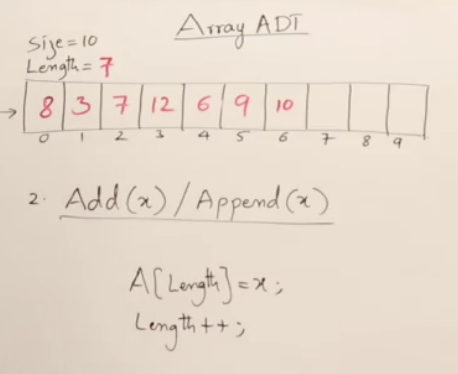 Array ADT
Size = 10
Length = 7
8 3 7 12 6 9 10
0 1 2 3 4 5 6 7 8 9
2. Add(x) / Append(x)
A[Length] = x;
Length++;